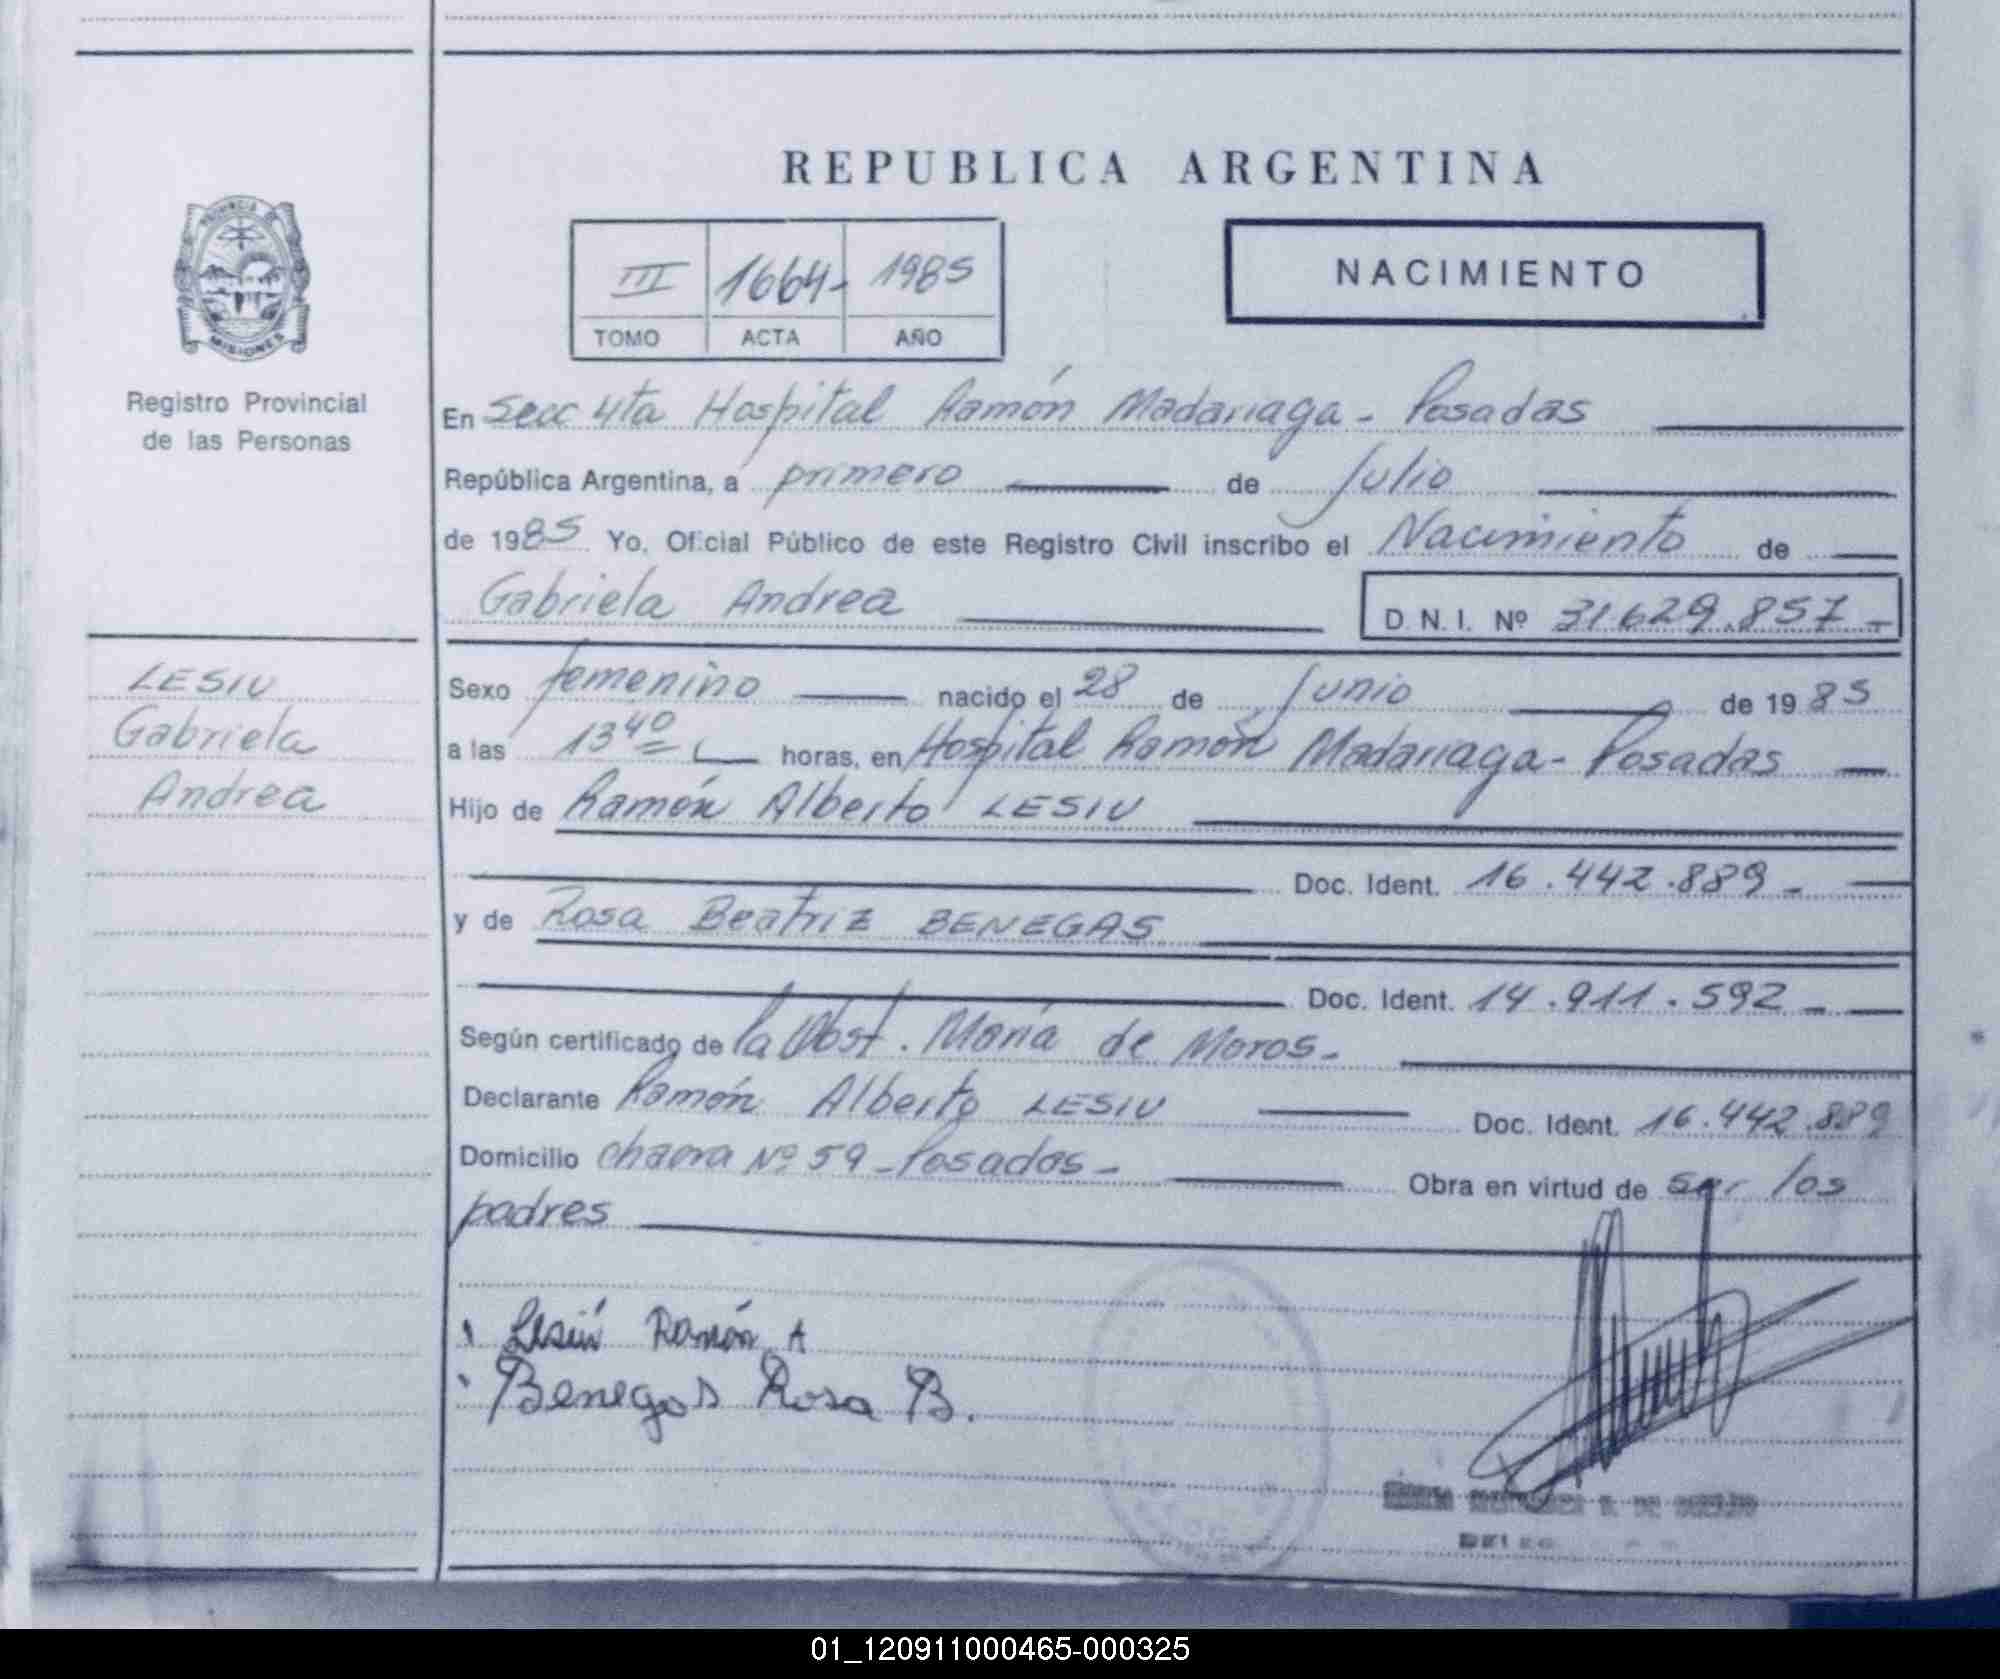 REPUBLICA ARGENTINA
PROVINCIA DE
MISIONES
Registro Provincial
de las Personas
III 1664- 1985
TOMO ACTA AÑO
NACIMIENTO
En Secc 4ta Hospital Ramón Madariaga - Posadas
República Argentina, a primero de Julio
de 1985 Yo, Oficial Público de este Registro Civil inscribo el Nacimiento de
Gabriela Andrea D.N.I. Nº 31.629.857-
LESIU
Gabriela
Andrea
Sexo femenino nacido el 28 de Junio de 1985
a las 13 40 horas, en Hospital Ramón Madariaga - Posadas
Hijo de Ramón Alberto LESIU
Doc. Ident. 16.442.889-
y de Rosa Beatriz BENEGAS
Doc. Ident. 14.911.592-
Según certificado de la Obst. María de Moros-
Declarante Ramón Alberto LESIU Doc. Ident. 16.442.889
Domicilio chacra Nº 59 - Posadas - Obra en virtud de ser los
padres
Lesiú Ramón A
Benegas Rosa B.
01_120911000465-000325